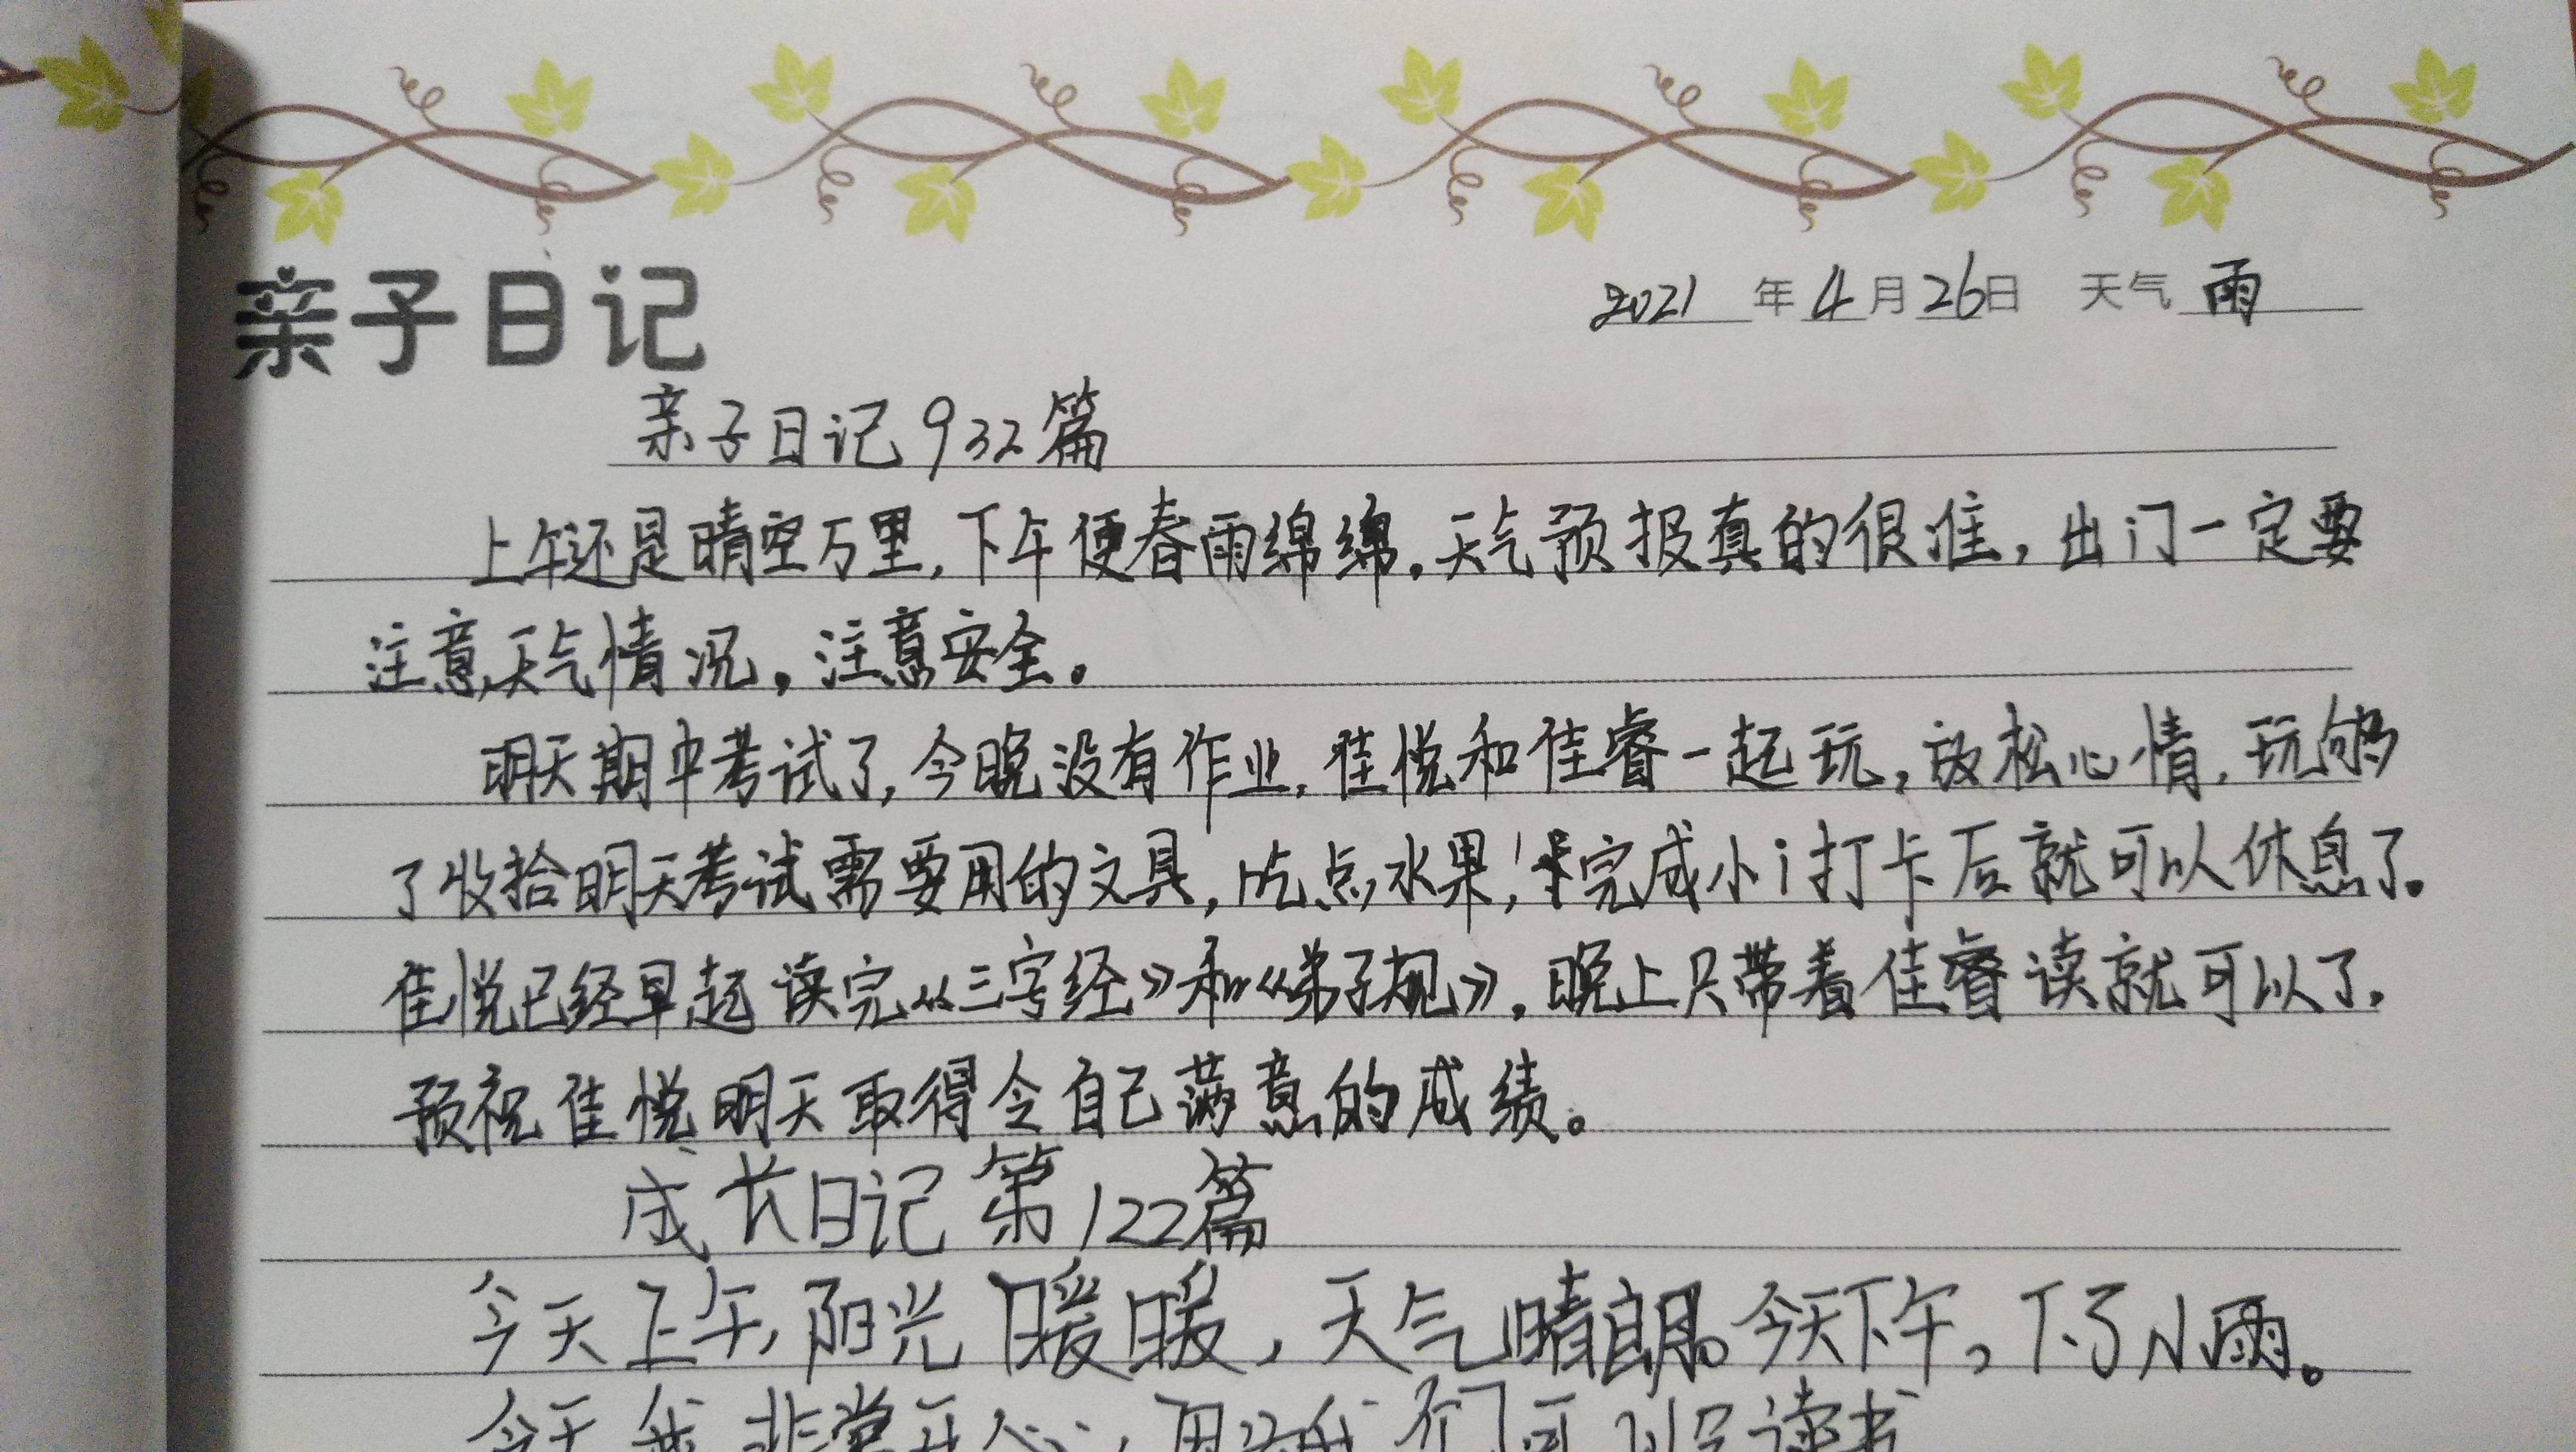 亲子日记
2021年4月26日 天气 雨
亲子日记932篇
上午还是晴空万里,下午便春雨绵绵。天气预报真的很准,出门一定要
注意天气情况,注意安全。
明天期中考试了,今晚没有作业,佳悦和佳睿一起玩,放松心情,玩够
了收拾明天考试需要用的文具,吃点水果,完成小i打卡后就可以休息了。
佳悦已经早起读完《三字经》和《弟子规》,晚上只带着佳睿读就可以了,
预祝佳悦明天取得令自己满意的成绩。
成长日记第122篇
今天上午,阳光暖暖,天气晴朗。今天下午,下了小雨。
今天我非常开心,因为我们可以读书